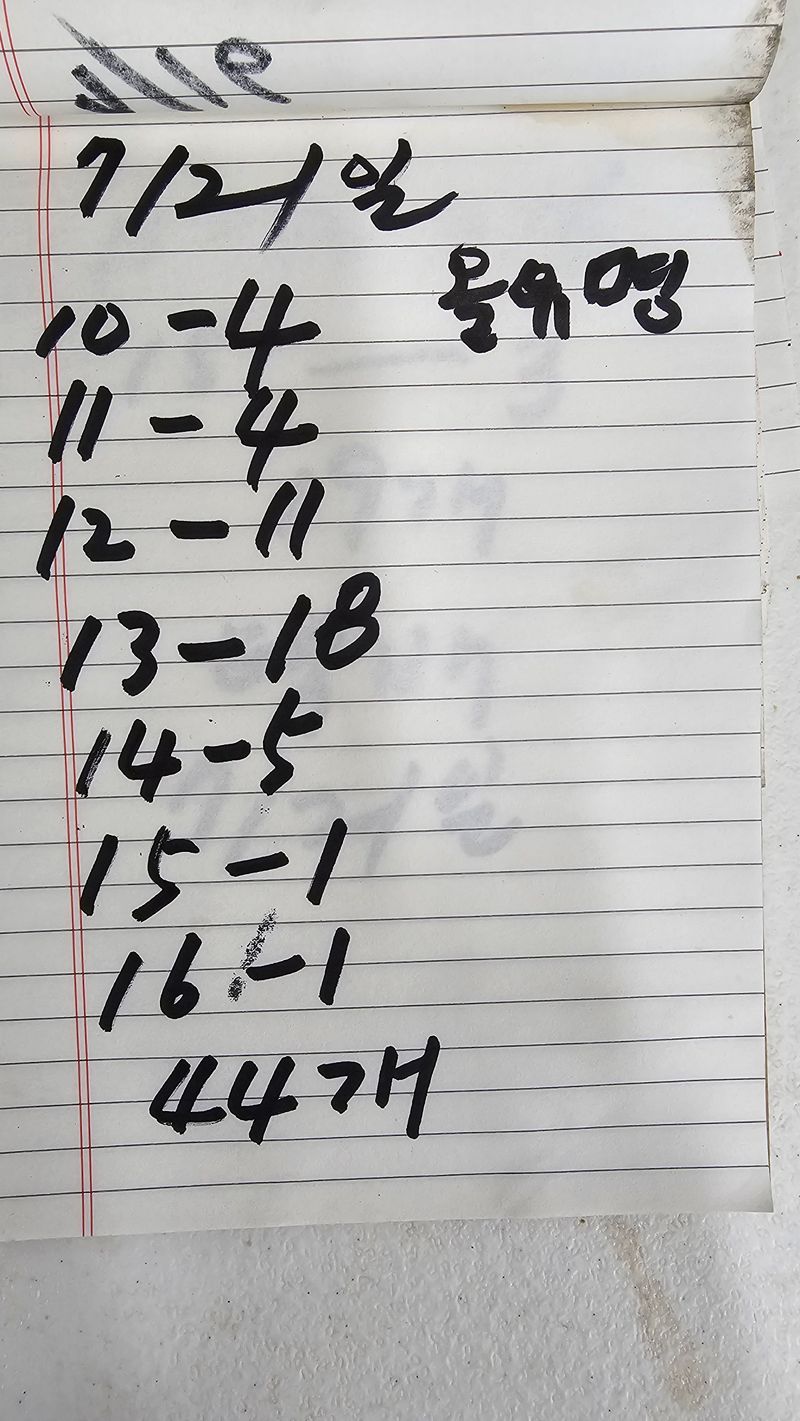 7/21일
올유명
10-4
11-4
12-11
13-18
14-5
15-1
16-1
44개